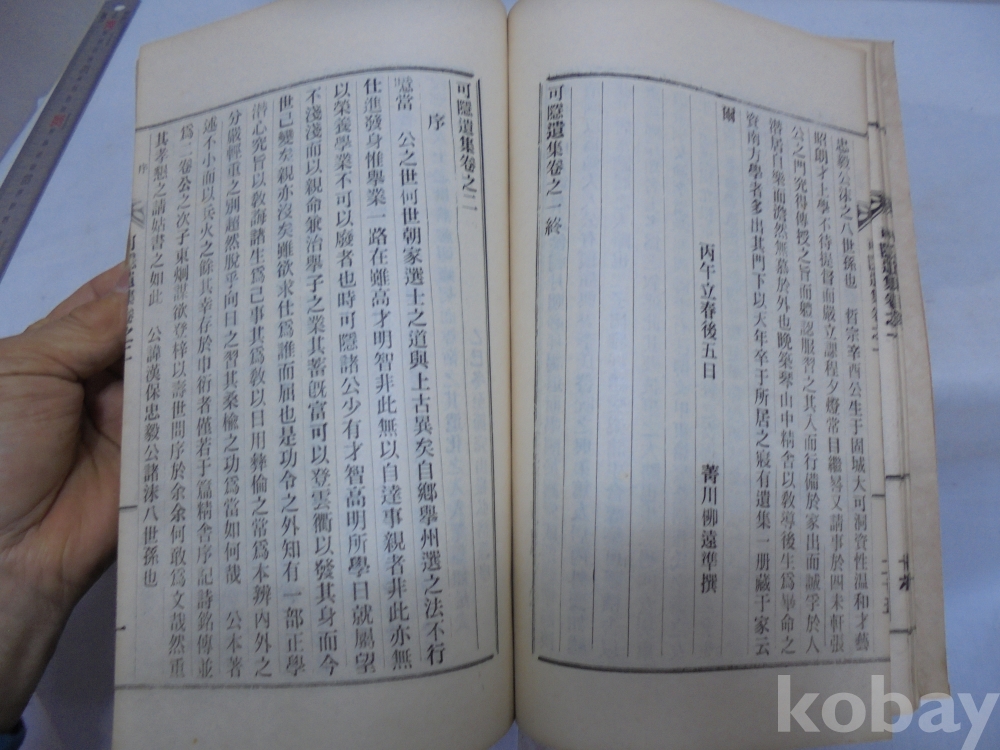 忠毅公洙之八世孫也 哲宗辛酉公生于固城大可洞資性温和才藝
昭朗才上學不待提督而嚴立課程夕燈常目繼晷又請事於四未軒張
公之門究得傳授之旨而體認服習之其入而行備於家出而誠孚於人
潜居自樂而澹然無慕於外也晩築琴山中精舍以敎導後生爲畢命之
資南方學者多出其門下以天年卒于所居之寢有遺集一册藏于家云
爾
丙午立春後五日 菁川 遠準撰
可隱遺集卷之一終
可隱遺集卷之二
序
噫當 公之世何世朝家選士之道與上古異矣自鄕擧州選之法不行
仕進發身惟擧業一路在雖高才明智非此無以自達事親者非此亦無
以榮養學業不可以廢者也時可隱諸公少有才智高明所學日就屬望
不淺淺而以親命兼治擧子之業其蓄旣富可以登雲衢以發其身而今
世已變矣親亦沒矣雖欲求仕爲誰而屈也是功令之外知有一部正學
潛心究旨以敎誨諸生爲己事其爲敎以日用彝倫之常爲本辨內外之
分嚴輕重之別超然脫乎向日之習其桑楡之功爲當如何哉 公本著
述不小而以兵火之餘其幸存於巾衍者僅若于篇精舍序記詩銘傳並
爲二卷公之次子東炯湜欲登梓以壽世問序於余余何敢爲文哉然重
其孝懇之請姑書之如此 公諱漢保忠毅公諸洙八世孫也
序
kobay